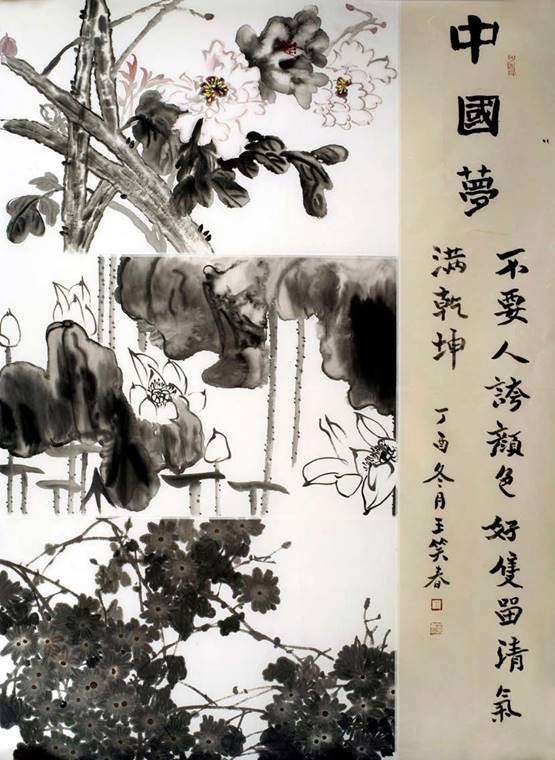 中國夢
不要人誇顏色好隻留清氣
满乾坤
丁酉冬月王笑春